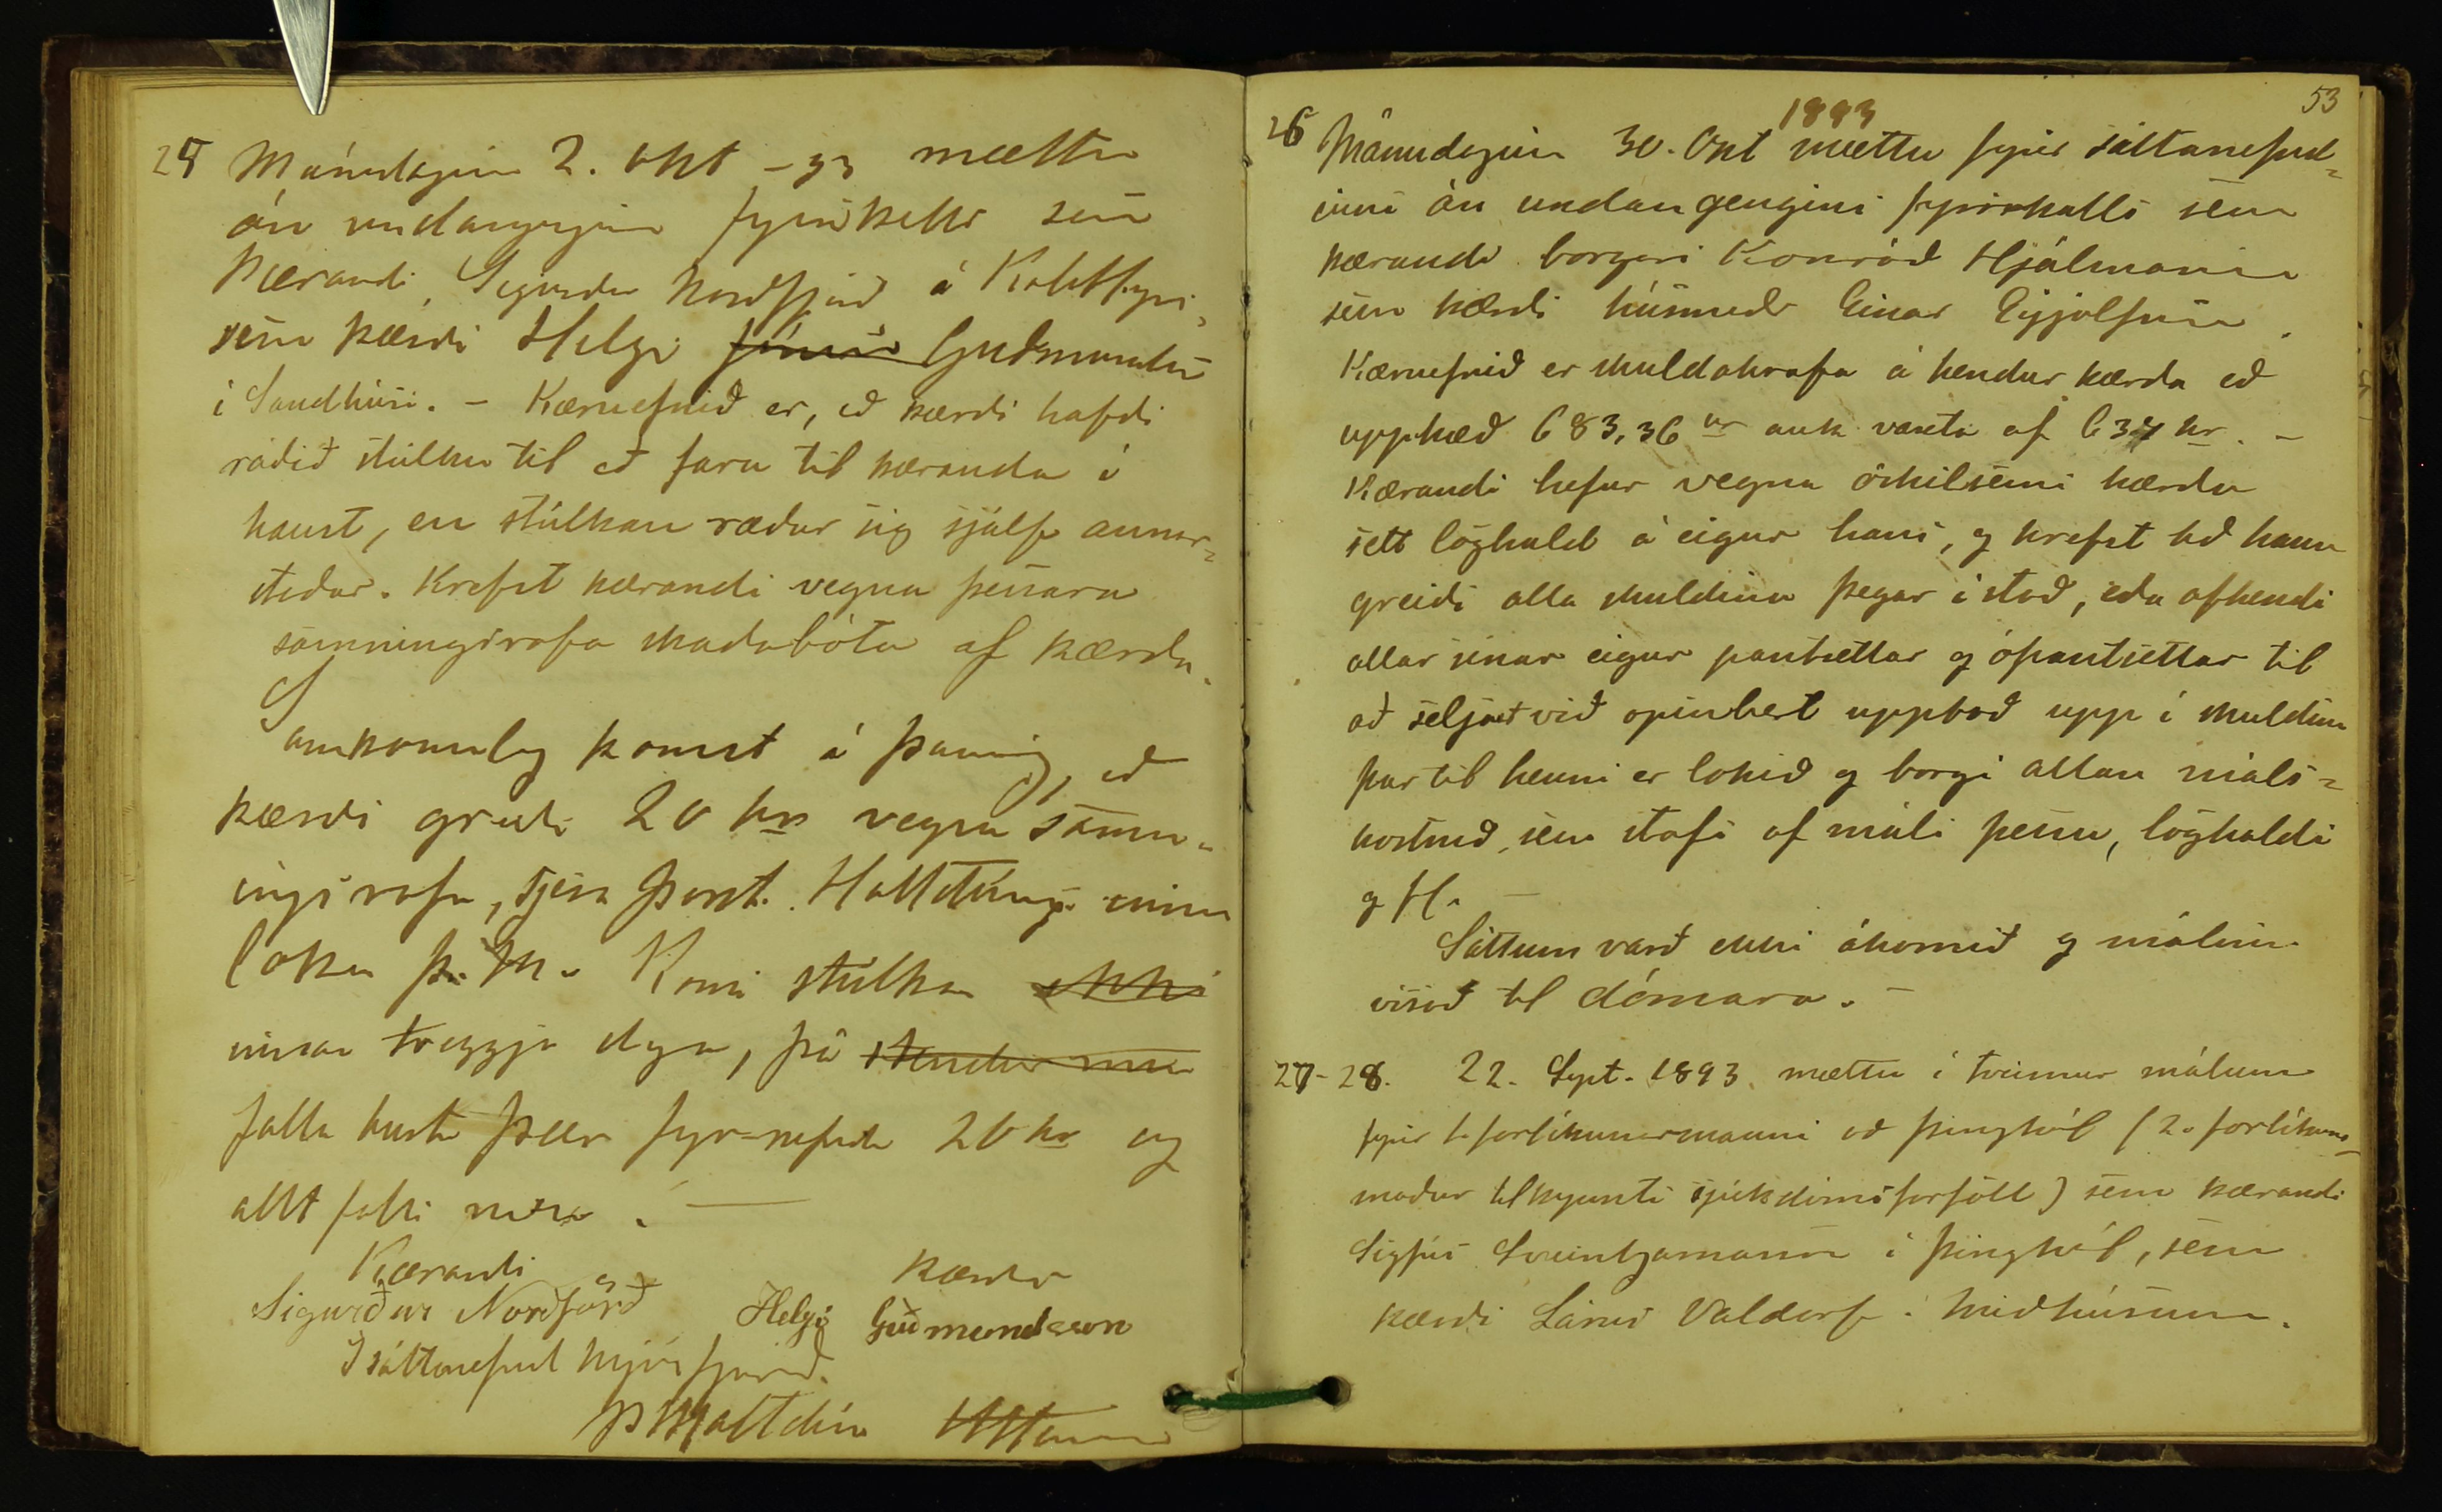 25 Mánudaginn 2. okt - 93 mættu
án undangengins fyrirkalls sem
kærandi, Sigurður Nordfjörd á Kolableyri,
sem kærði Helgi Guðmundss
í Sandhúsi. - Kæruefnið er, að kærði hafði
ráðið stúlku til að fara til kæranda í
haust, en stúlkan ræður sig sjálf annar-
stadar. Krefst kærandi vegna þessara
samningsrofa skadabóta af kærða.
Samkomulag komst á þannig, að
kærði greiði 20 kr vegna samn-
ingsrofa, til Þorst. Halldórss. innan
loka þ. M. Komi stúlkan ekki
innan tveggja daga, þá
falla burt þær fyrnefndu 20 kr og
allt falli nidur. -
Kærandi kærdi
Sigurður Norðfjörð Helgi Guðmundsson
Í sáttanefnd Mjóafjarðar.
Þ Halldórss
53
1893
26 Mánudaginn 30. Okt mættu fyrir sáttanefnd-
inni án undangengins fyrirkalls sem
kærandi borgari Konráð Hjálmarsson
sem kærði húsmaðr Einar Eyjólfsson.
Kæruefnið er skuldakrafa á hendur kærða að
upphæð 683,36 kr auk vaxta af 637 kr. -
Kærandi hefur vegna óskilsemi kærða
sett löghald á eigur hans, og krefst að hann
greiði alla skuldina þegar í stað, eða afhendi
allar sínar eigur pantsettar og ópantsettar til
að seljast við opinbert uppboð upp í skuldina
þar til henni er lokið og borgi allan máls-
kostnað, sem stafi af máli þessu, löghaldi
og fl. -
Sáttum varð ekki ákomið og málinu
vísað til dómara. -
27-28. 22. Sept. 1893 mættu í tveimur málum
fyrir 1. forlíkunarmanni að Þinghól (2. forlíkuns-
maður tilkynnti sjúkdómsforföll) sem kærandi
Sigfús Sveinbjarnarson í Þinghól, sem
kærði Lárus Valdorf í Miðhúsum.